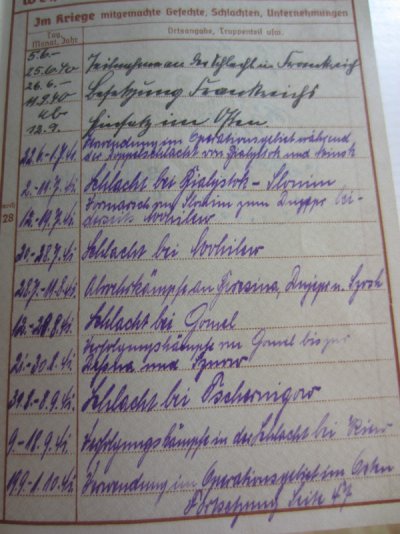 Im Kriege mitgemachte Gefechte, Schlachten, Unternehmungen
Tag, Monat, Jahr
Ortsangabe, Truppenteil usw.
5.6.-
25.6.40 Teilnehmer an der Schlacht in Frankreich
26.6.-
11.9.40 Besetzung Frankreichs
ab
12.9. Einsatz im Osten.
22.6.-1.7.41. Verwendung im Operationsgebiet während
der Doppelschlacht von Bialystok und Minsk
2.-11.7.41. Schlacht bei Bialystok - Slonim
Vormarsch von Slonim zum Dnjepr bei-
12.-19.7.41. derseits Mohilew
28
20.-28.7.41. Schlacht bei Mohilew
28.7.-11.8.41. Abwehrkämpfe an Beresina, Dnjepr u. Sosch
12.-20.8.41. Schlacht bei Gomel
Verfolgungskämpfe um Gomel bis zur
21.-30.8.41. und
31.8.-8.9.41. Schlacht bei Tschernigow
9.-18.9.41. Verfolgungskämpfe in der Schlacht bei Kiew
19.9.-1.10.41. Verwendung im Operationsgebiet im Osten
Fortsetzung Seite 47